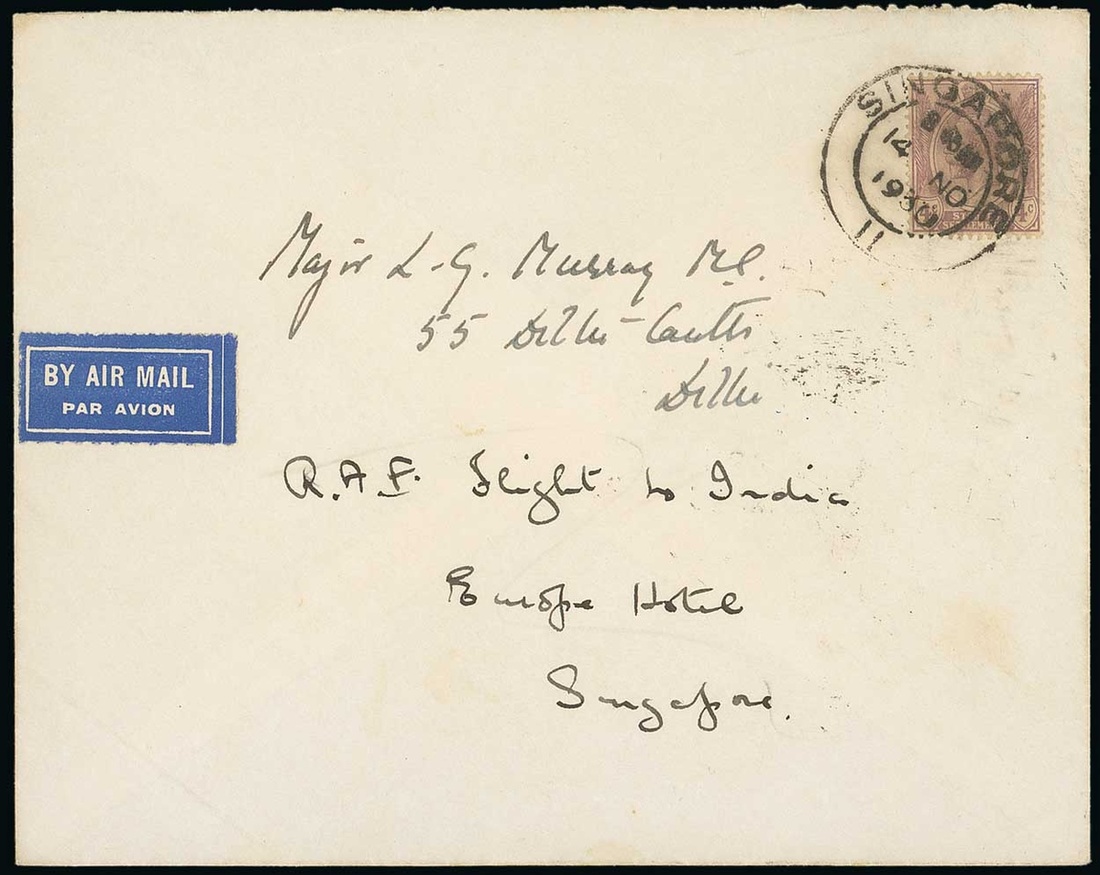 SINGAPORE
14 NO
1930
11
4c
Major L-G. Murray M.C.
55 Delhi Cantts
Delhi
BY AIR MAIL
PAR AVION
R.A.F. Flight to India
Europe Hotel
Singapore.